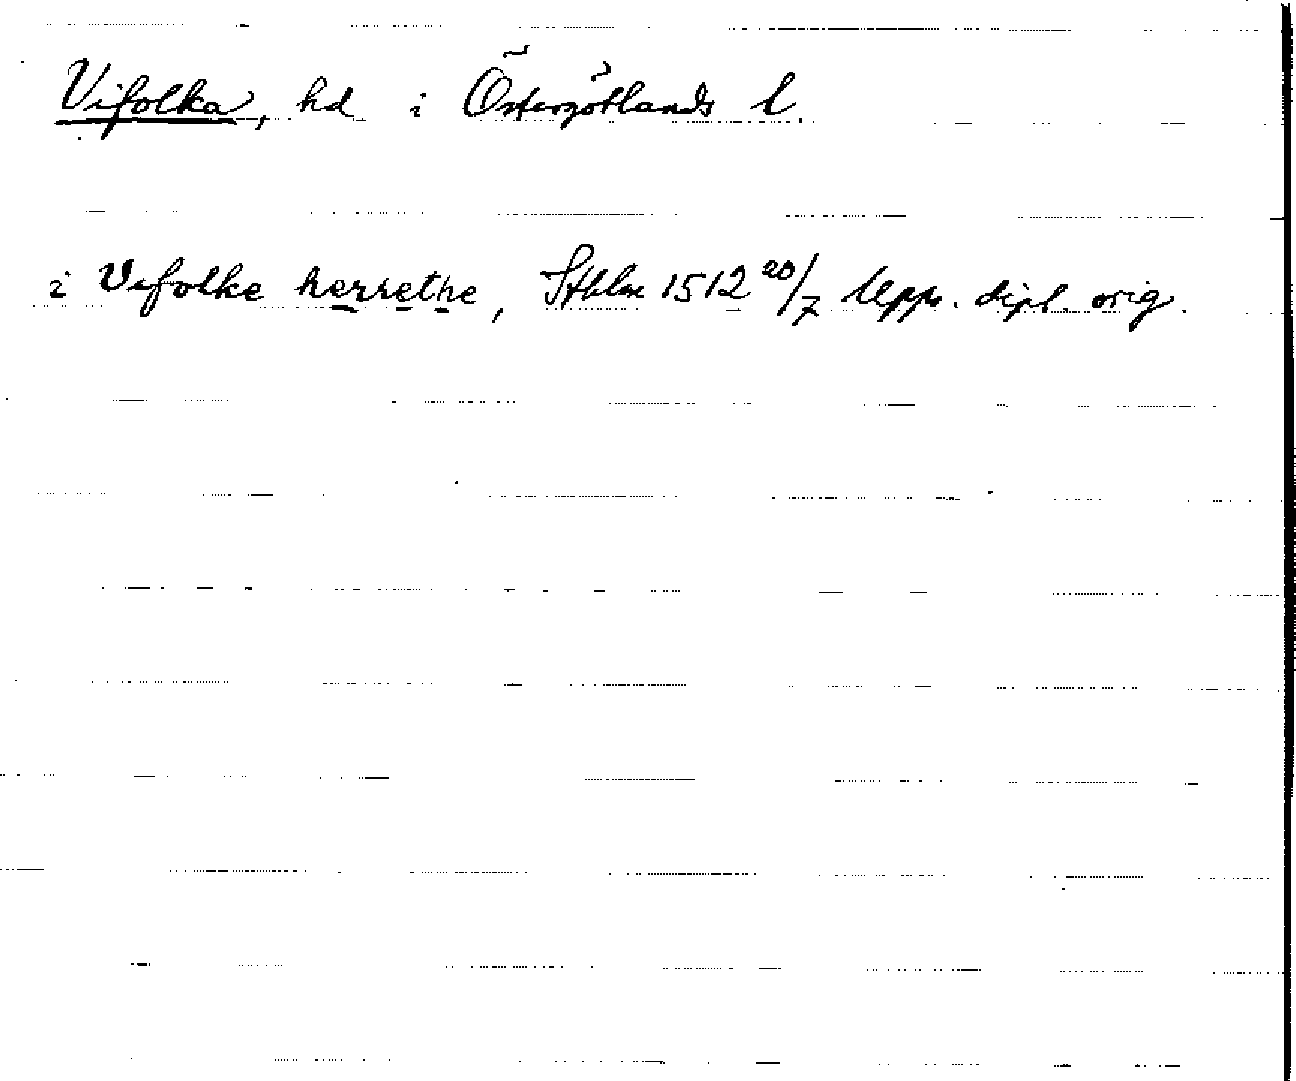 Vifolka, hd i Östergötlands l.
i Vifolke herrethe, Sthlm 1512 20/7 Upps. dipl. orig.